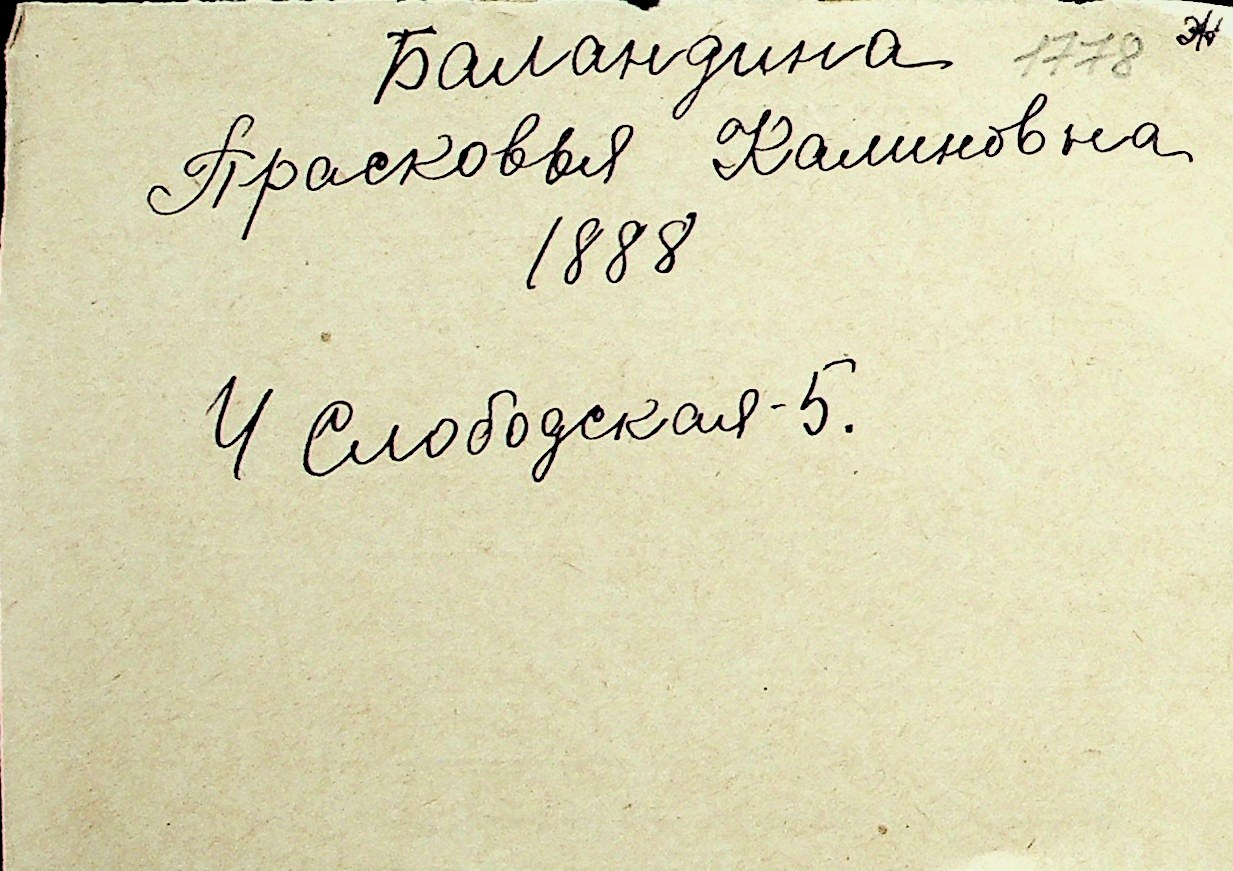 Баландина 1778 Ж
Прасковья Калиновна
1888
Ч Слободская-5.